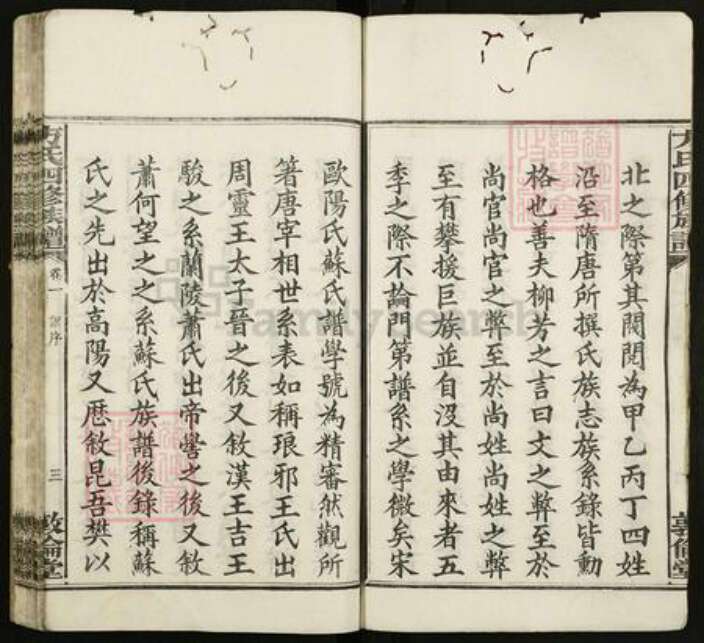 方氏四修族譜
北之際第其閥閱為甲乙丙丁四姓
沿至隋唐所撰氏族志族系錄皆動
格也善夫柳芳之言曰文之弊至於
尚官尚官之弊至於尚姓尚姓之弊
至有攀援巨族並自沒其由來者五
季之際不論門第譜系之學微矣宋
敦倫堂
歐陽氏蘇氏譜學號為精審然觀所
箸唐宰相世系表如稱琅邪王氏出
周靈王太子晉之後又敘漢王吉王
駿之系蘭陵蕭氏出帝嚳之後又敘
蕭何望之之系蘇氏族譜後錄稱蘇
氏之先出於高陽又歷敘昆吾樊以
方氏四修族譜
卷一
序
三
敦倫堂
FamilySearch